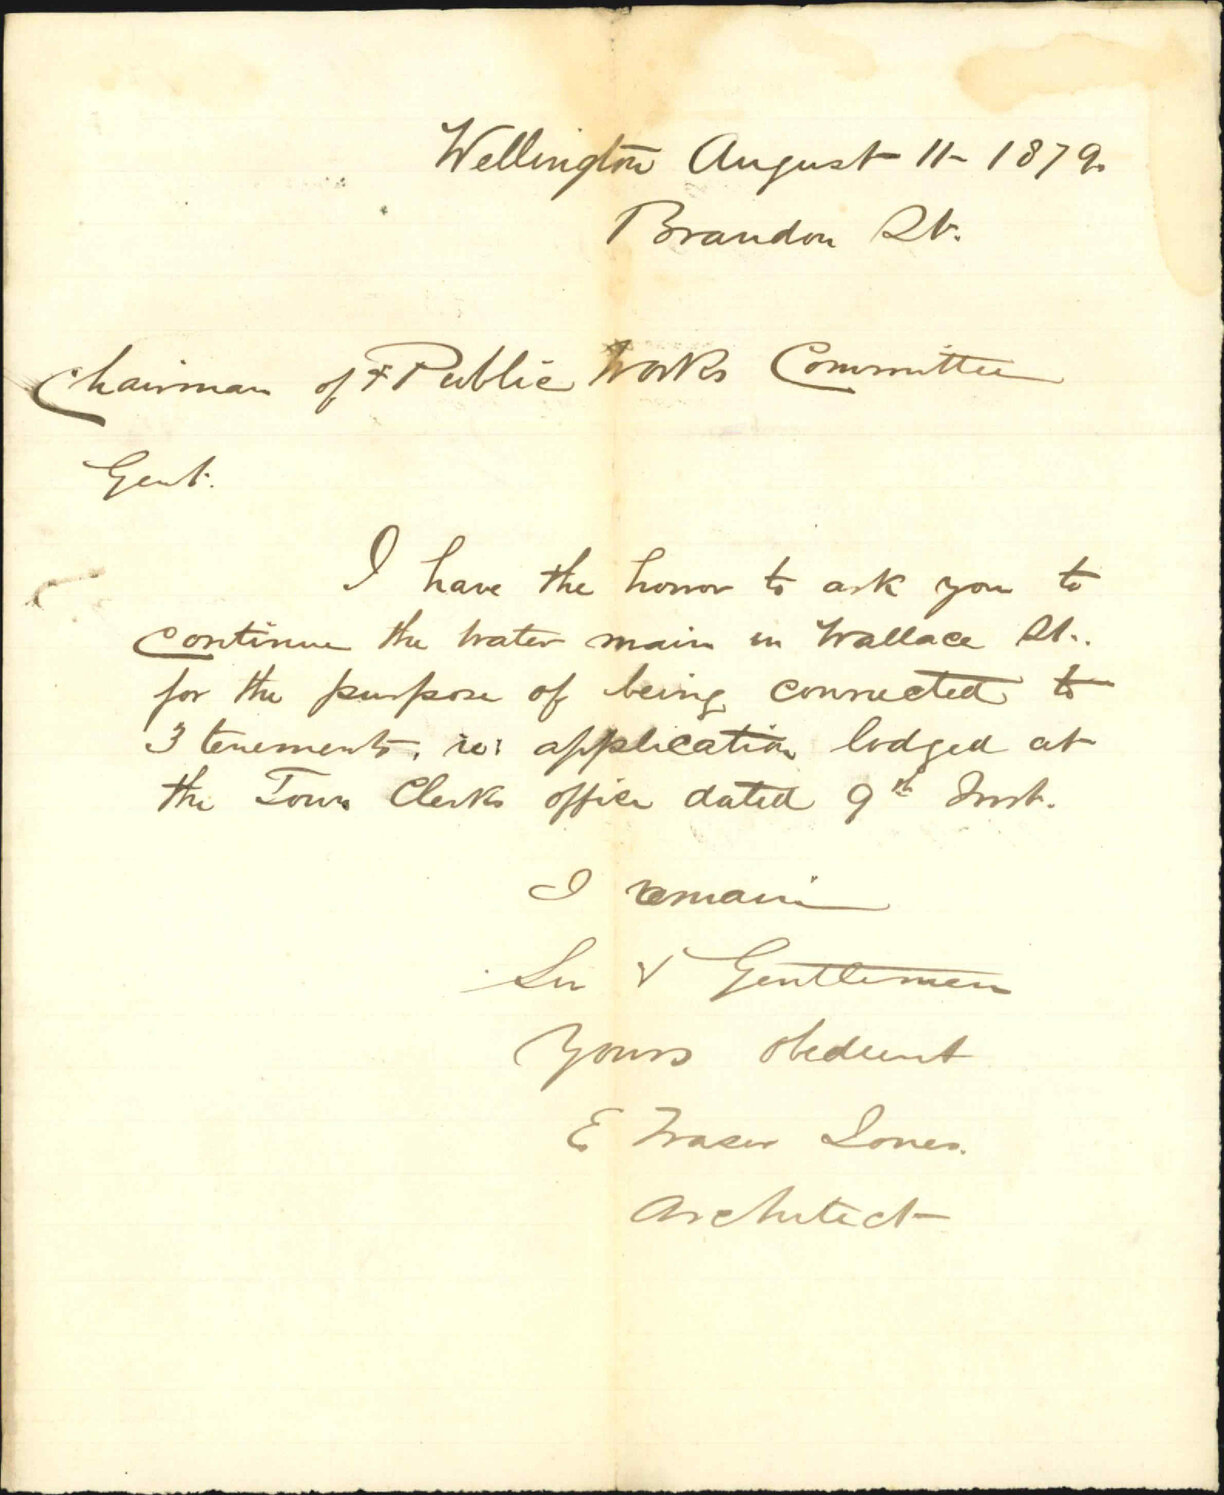 Wellington August 11 - 1879.
Brandon St.
Chairman of & Public Works Committee
Gent.
I have the honor to ask you to
continue the water main in Wallace St.
for the purpose of being connected to
3 tenements, re: application lodged at
the Town Clerks office dated 9th Inst.
I remain
Sir & Gentlemen
Yours obedient
E Fraser Jones.
Architect